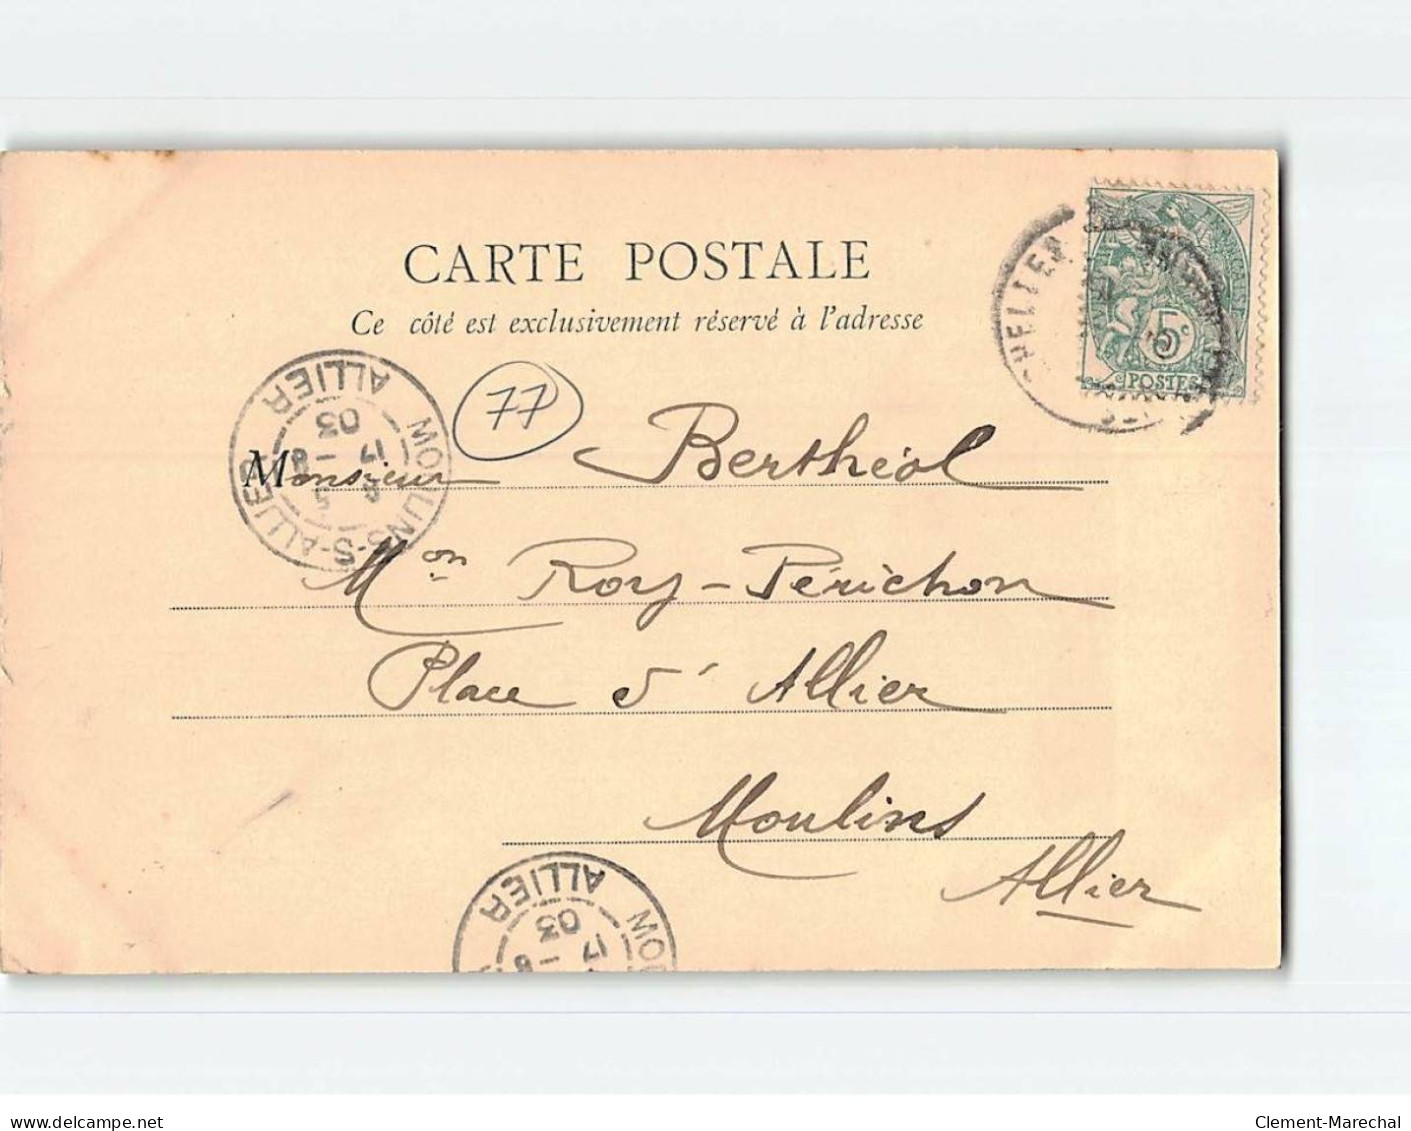 CARTE POSTALE
Ce côté est exclusivement réservé à l'adresse
77
5c
POSTES
MOULINS-S-ALLIER
17
8
03
ALLIER
Monsieur Berthéol
Mon Roy-Périchon
Place d'Allier
Moulins
Allier
17
8
03
ALLIER
delcampe.net
Clement-Marechal